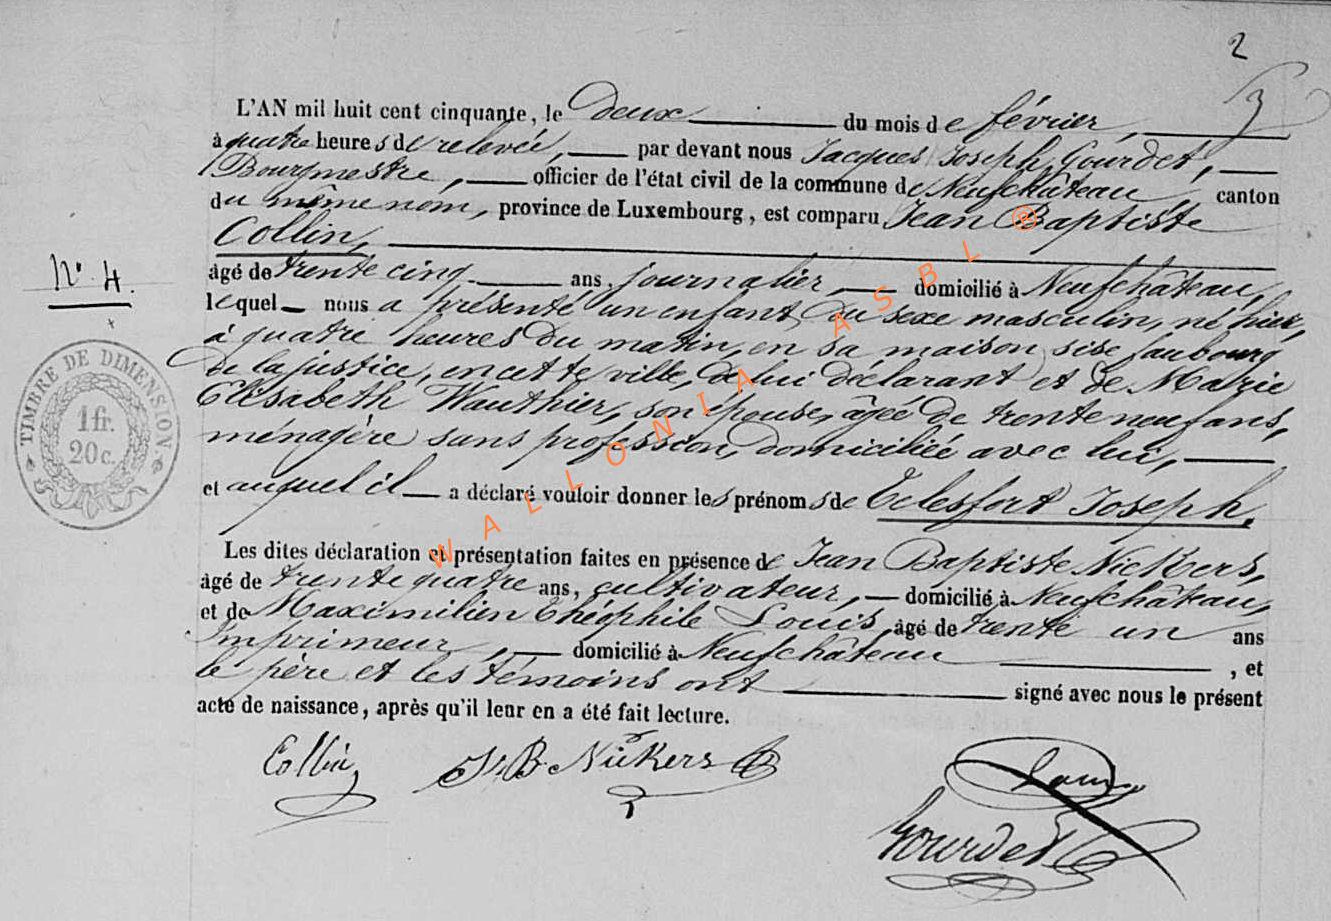 2
3
L'AN mil huit cent cinquante, le deux du mois de février,
à quatre heures de relevée, par devant nous Jacques Joseph Gourdet,
Bourgmestre, officier de l'état civil de la commune de Neufchâteau canton
du même nom, province de Luxembourg, est comparu Jean Baptiste
Collin,
N° 4.
âgé de trente cinq ans, journalier, domicilié à Neufchâteau,
lequel nous a présenté un enfant du sexe masculin, né hier,
à quatre heures du matin, en sa maison sise faubourg
de la justice, en cette ville, de lui déclarant et de Marie
Elisabeth Wauthier, son épouse, âgée de trente neuf ans,
ménagère sans profession, domiciliée avec lui,
et auquel il a déclaré vouloir donner les prénoms de Telesfort Joseph.
TIMBRE DE DIMENSION.
1 fr.
20 c.
Les dites déclaration et présentation faites en présence de Jean Baptiste Nickers,
âgé de trente quatre ans, cultivateur, domicilié à Neufchâteau,
et de Maximilien Théophile Louis, âgé de trente un ans
Imprimeur, domicilié à Neufchâteau, et
le père et les témoins ont signé avec nous le présent
acte de naissance, après qu'il leur en a été fait lecture.
Collin
J. B. Nickers
Louis
Gourdet
WALLONIA ASBL ®